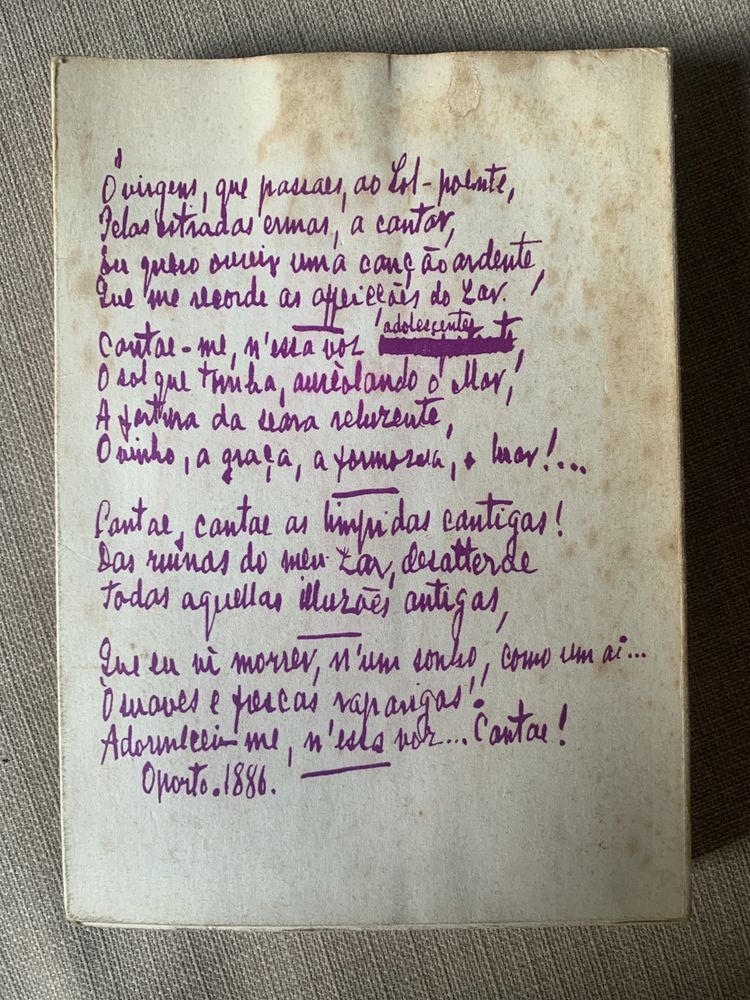 Ó virgens, que passaes, ao Sol-poente,
Pelas estradas ermas, a cantar,
Eu quero ouvir uma canção ardente,
Que me recorde as affeições do Lar.
adolescente
Cantae-me, n'essa voz ,
O sol que tomba, aureolando o Mar,
A fartura da seara reluzente,
O vinho, a graça, a formosura, o luar!...
Cantae, cantae as limpidas cantigas!
Das ruinas do meu Lar, desatterae
Todas aquellas illuzões antigas,
Que eu vi morrer, n'um sonho, como um ai...
Ó suaves e frescas raparigas!
Adormecei-me, n'essa voz... Cantae!
Oporto. 1886.